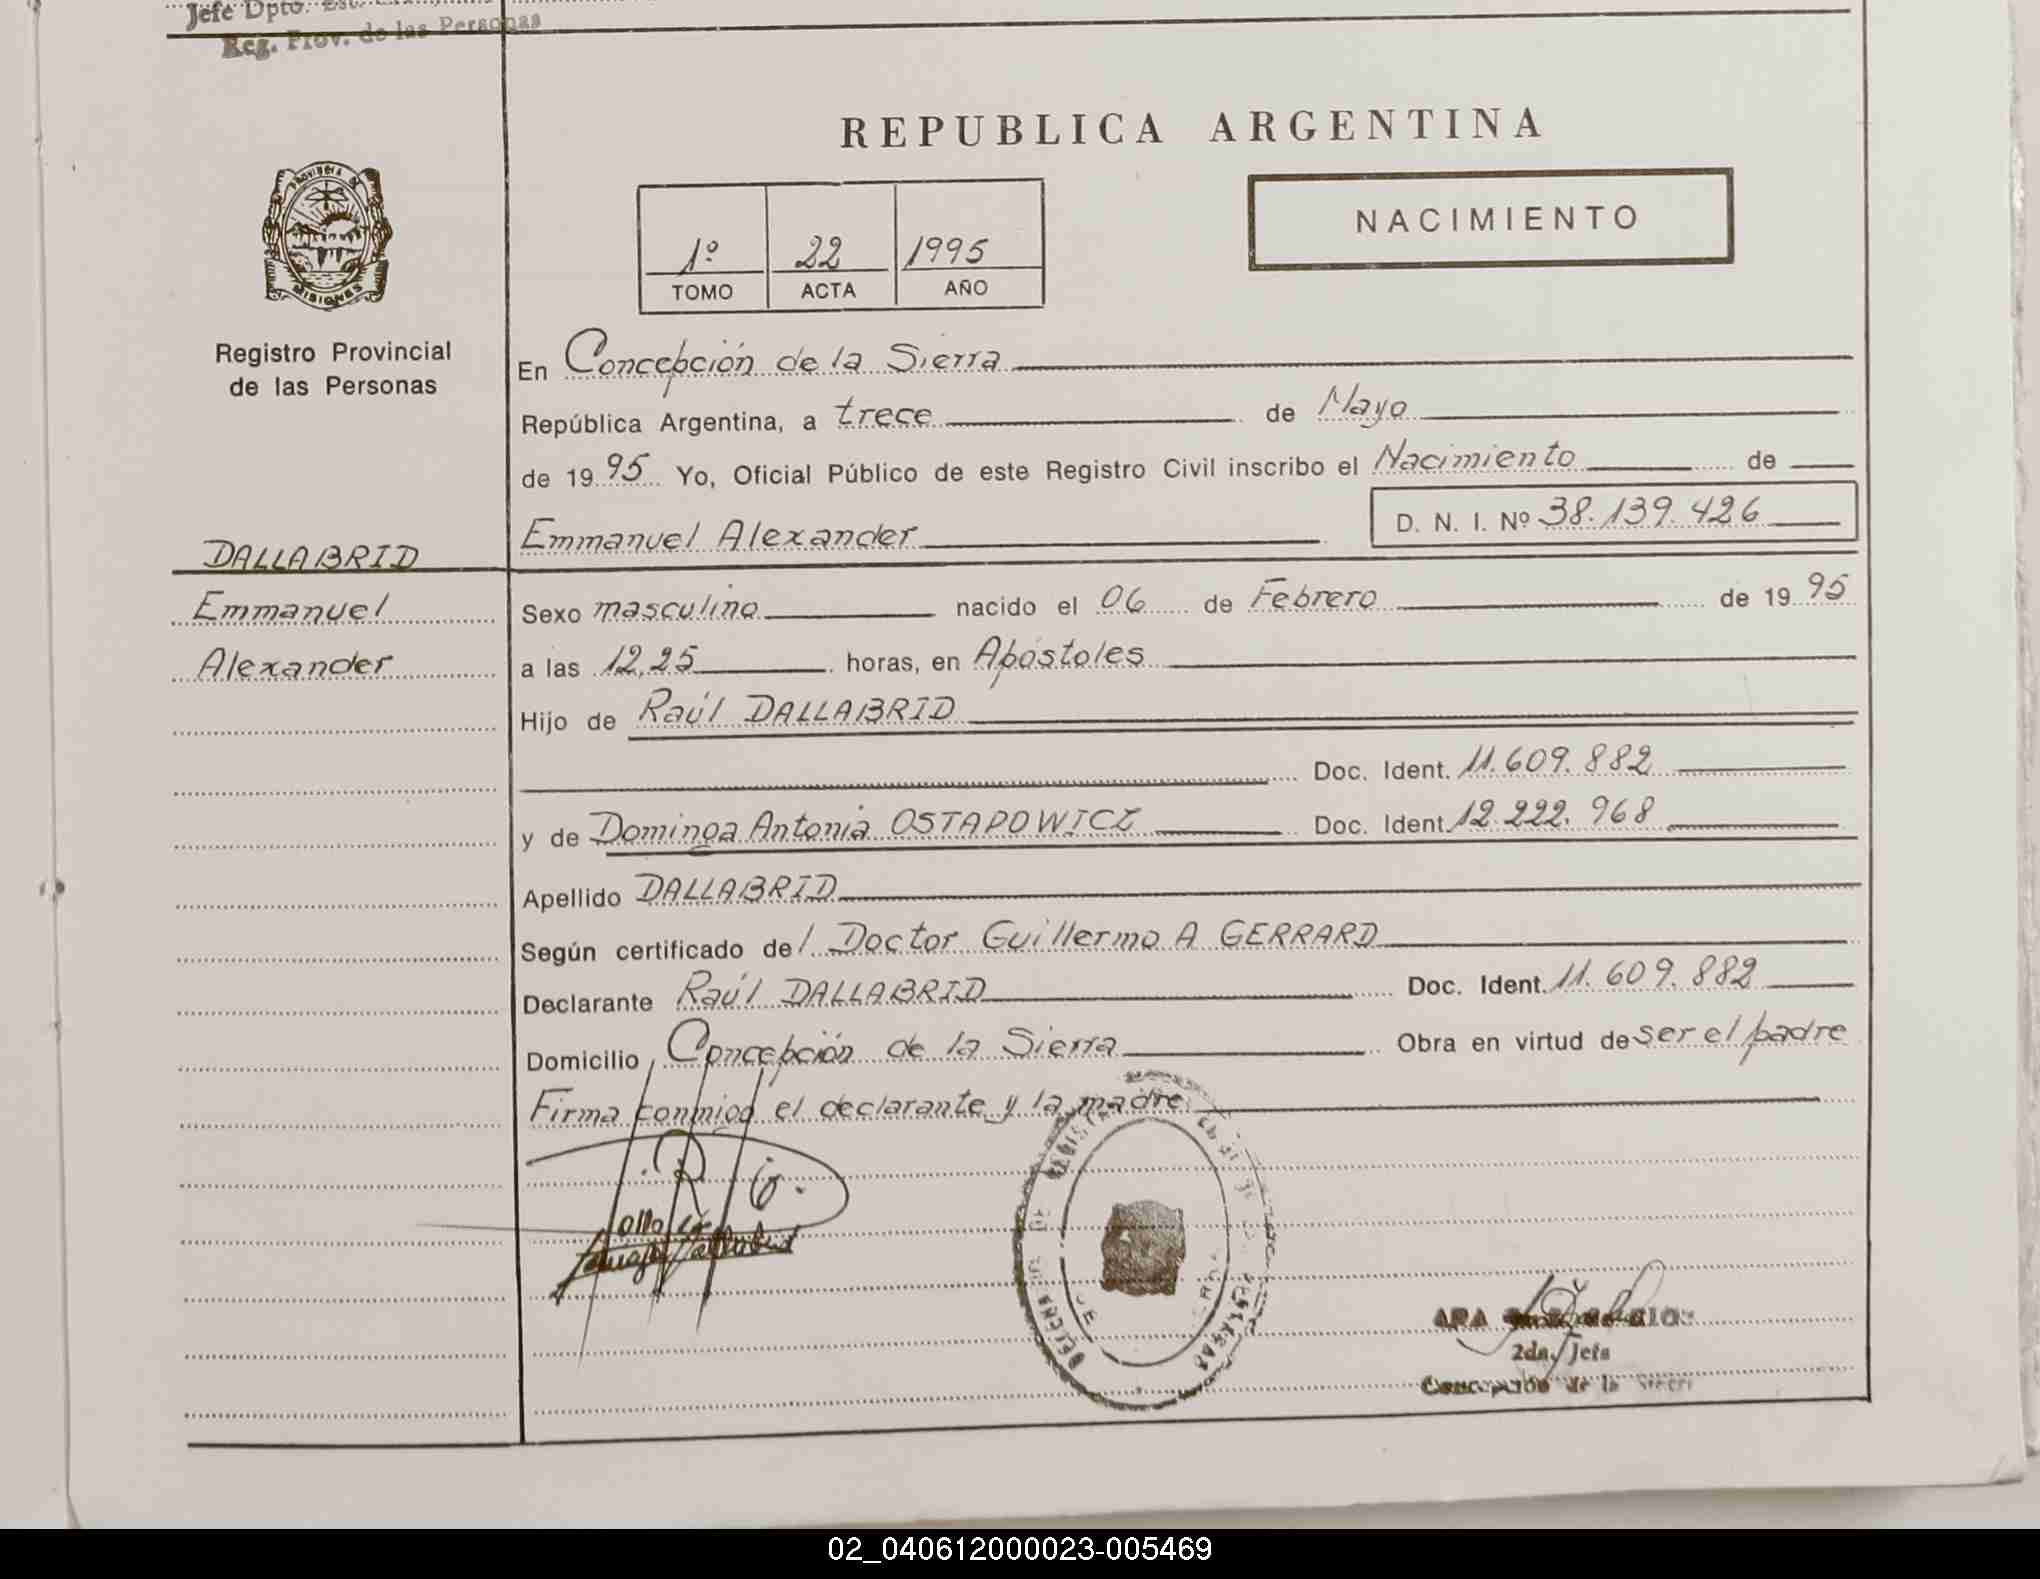 Jefe Dpto. Est.
Reg. Prov. de las Personas
REPUBLICA ARGENTINA
PROVINCIA DE
MISIONES
1º 22 1995
TOMO ACTA AÑO
NACIMIENTO
Registro Provincial
de las Personas
En Concepción de la Sierra
República Argentina, a trece de Mayo
de 1995 Yo, Oficial Público de este Registro Civil inscribo el Nacimiento de
D. N. I. Nº 38.139.426
Emmanuel Alexander
DALLABRID
Emmanuel
Alexander
Sexo masculino nacido el 06 de Febrero de 1995
a las 12,25 horas, en Apóstoles
Hijo de Raúl DALLABRID
Doc. Ident. 11.609.882
y de Dominga Antonia OSTAPOWICZ Doc. Ident. 12.222.968
Apellido DALLABRID
Según certificado del Doctor Guillermo A GERRARD
Declarante Raúl DALLABRID Doc. Ident. 11.609.882
Domicilio Concepción de la Sierra Obra en virtud de ser el padre
Firma conmigo el declarante y la madre
2da. Jefa
Concepción de la Sierra
02_040612000023-005469